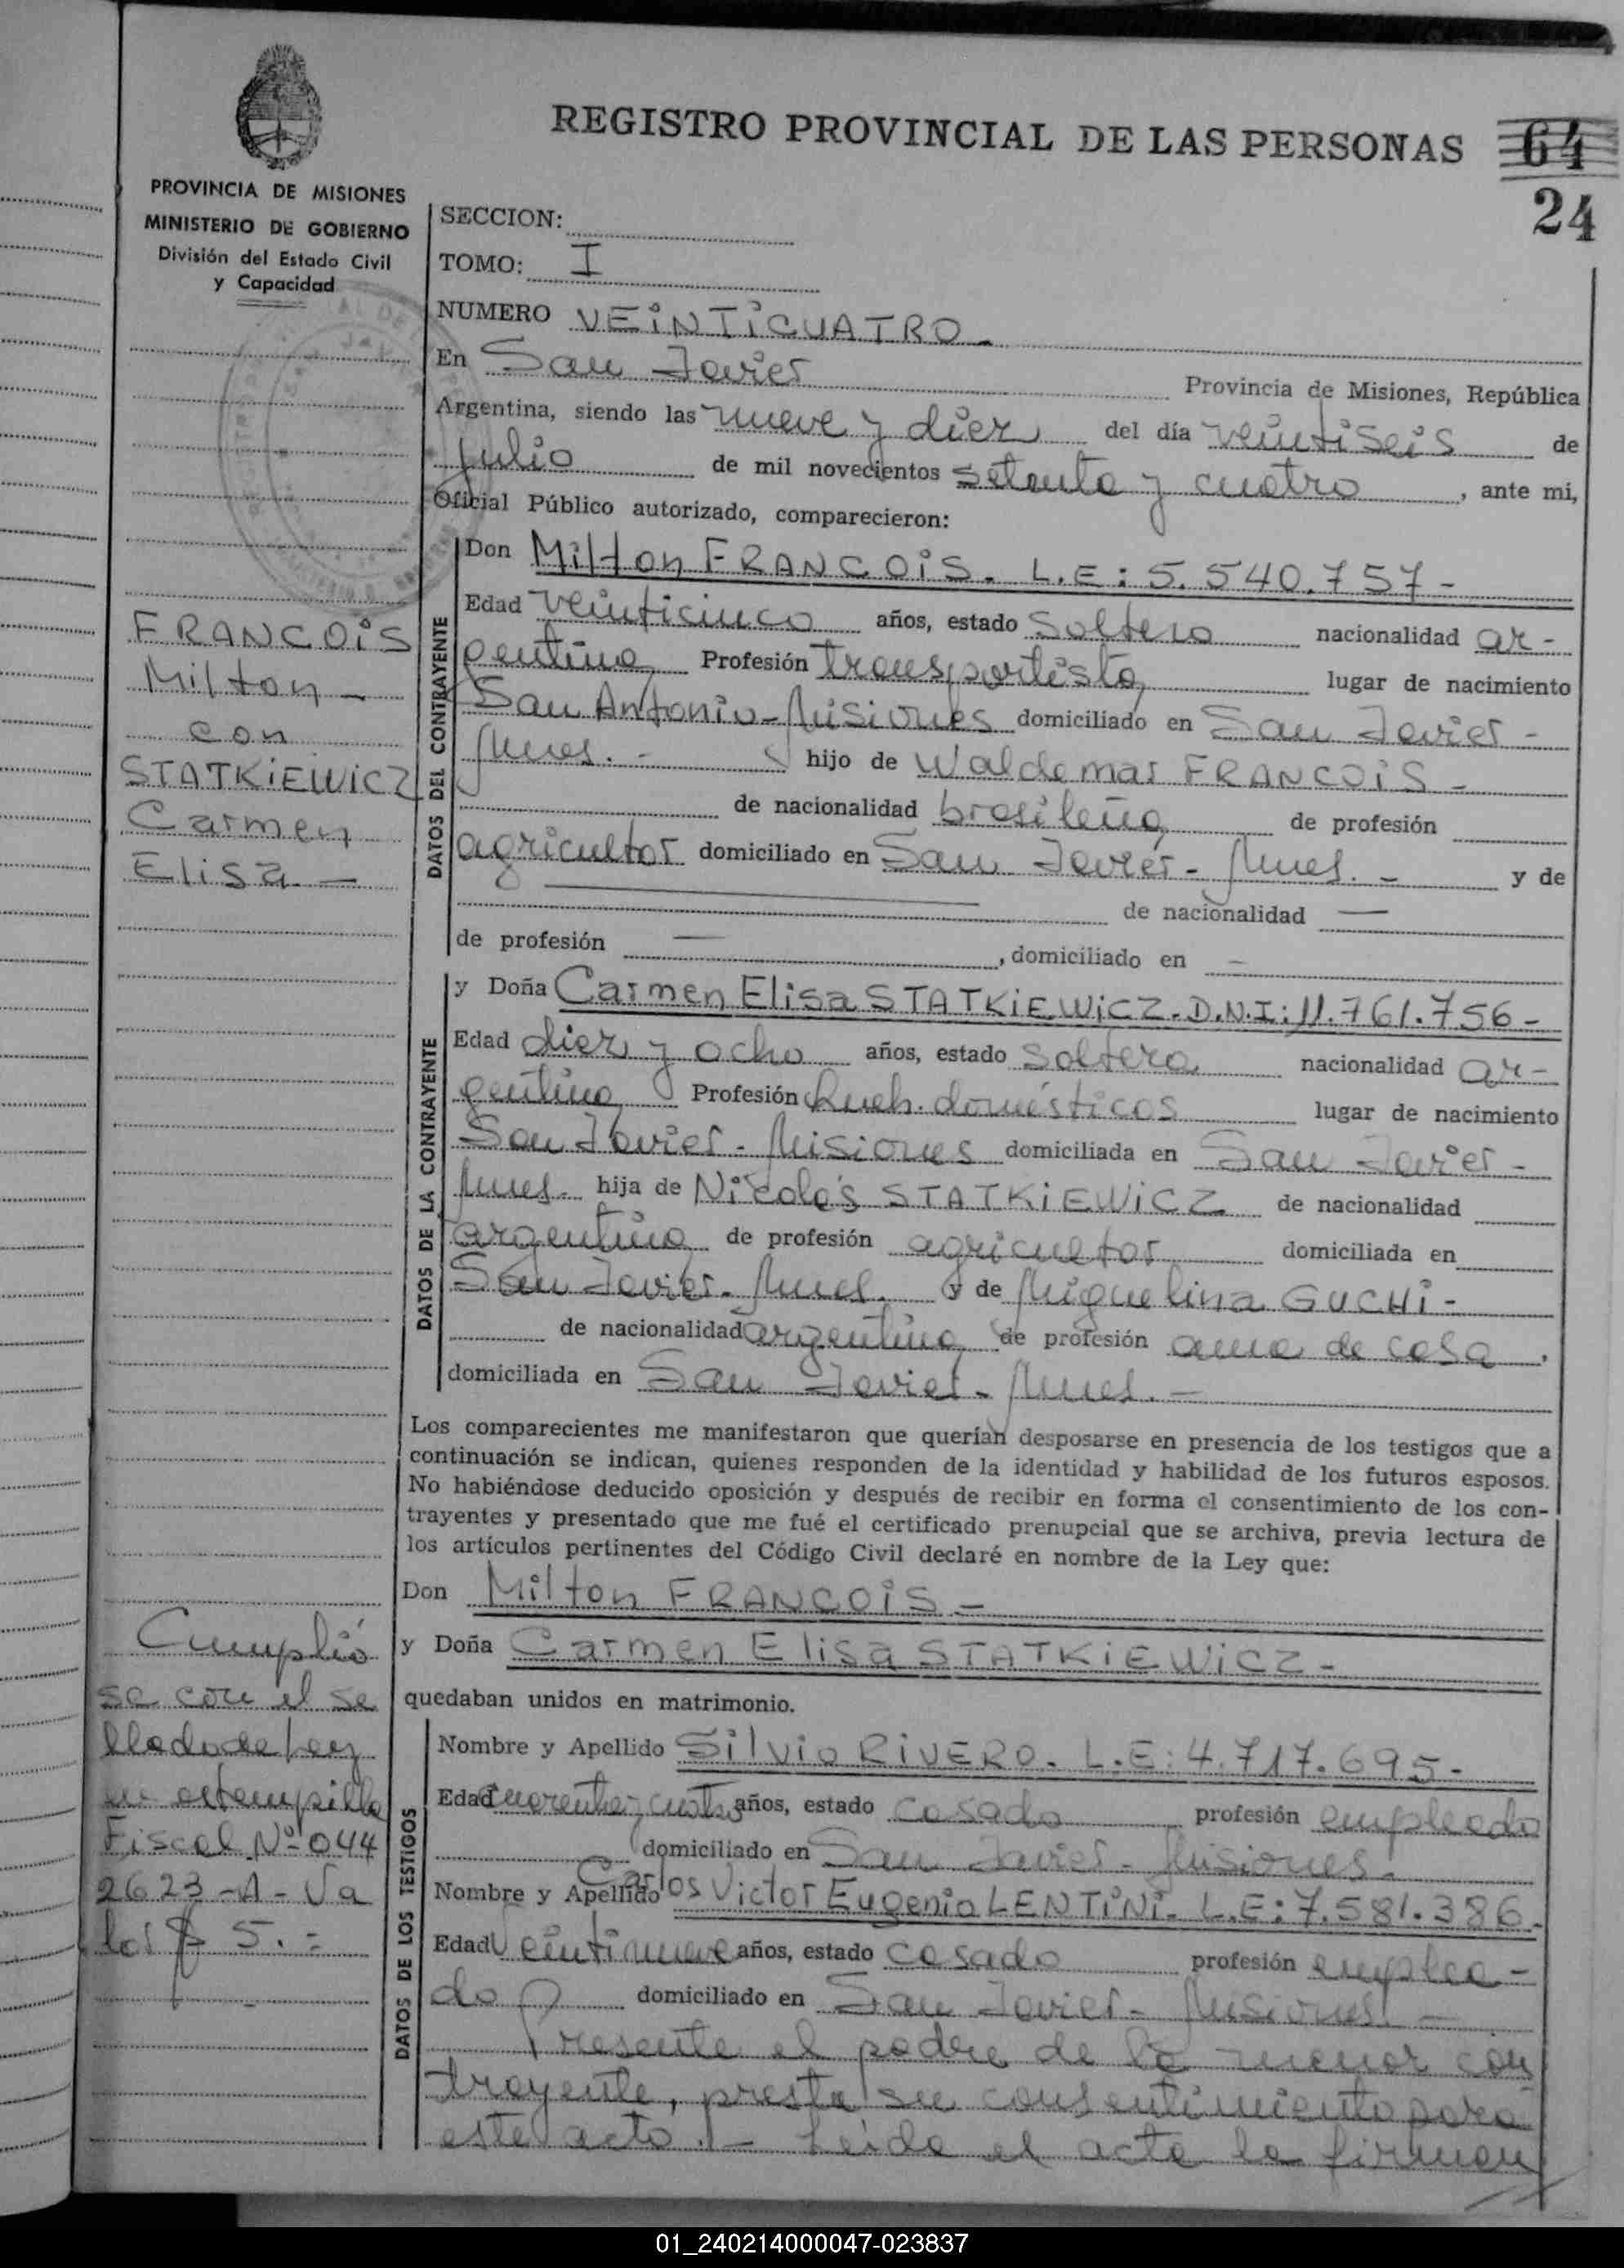 REGISTRO PROVINCIAL DE LAS PERSONAS
64
24
PROVINCIA DE MISIONES
MINISTERIO DE GOBIERNO
División del Estado Civil
y Capacidad
SECCION:
TOMO: I
NUMERO VEiNTiCUATRO.
En San Javier Provincia de Misiones, República
Argentina, siendo las nueve y diez del día veintiseis de
julio de mil novecientos setenta y cuatro, ante mi,
Oficial Público autorizado, comparecieron:
FRANCOiS
Milton -
con
STATKiEWiCZ
Carmen
Elisa -
DATOS DEL CONTRAYENTE
Don Milton FRANCOiS. L.E: 5.540.757-
Edad veinticinco años, estado soltero nacionalidad ar-
gentina Profesión transportista lugar de nacimiento
San Antonio-Misiones domiciliado en San Javier-
Mnes.- hijo de Waldemar FRANCOiS-
de nacionalidad brasileña de profesión
agricultor domiciliado en San Javier-Mnes.- y de
de nacionalidad —
de profesión —, domiciliado en -
DATOS DE LA CONTRAYENTE
y Doña Carmen Elisa STATKiEWiCZ-D.N.I: 11.761.756-
Edad diez y ocho años, estado soltera nacionalidad ar-
gentina Profesión Queh. domésticos lugar de nacimiento
San Javier-Misiones domiciliada en San Javier-
Mnes. hija de Nicolás STATKiEWiCZ de nacionalidad
argentina de profesión agricultor domiciliada en
San Javier-Mnes. y de Miguelina GUCHi-
de nacionalidad argentina de profesión ama de casa,
domiciliada en San Javier-Mnes.-
Los comparecientes me manifestaron que querían desposarse en presencia de los testigos que a
continuación se indican, quienes responden de la identidad y habilidad de los futuros esposos.
No habiéndose deducido oposición y después de recibir en forma el consentimiento de los con-
trayentes y presentado que me fué el certificado prenupcial que se archiva, previa lectura de
los artículos pertinentes del Código Civil declaré en nombre de la Ley que:
Don Milton FRANCOiS-
y Doña Carmen Elisa STATKiEWiCZ-
quedaban unidos en matrimonio.
Cumplió
se con el se
llado de Ley
en estampilla
Fiscal Nº 044
2623-A-Va
lor $ 5.-
DATOS DE LOS TESTIGOS
Nombre y Apellido Silvio RiVERO. L.E: 4.717.695-
Edad cuarenta y cuatro años, estado casado profesión empleado
domiciliado en San Javier-Misiones.
Nombre y Apellido Carlos Victor Eugenio LENTiNi. L.E: 7.581.386.
Edad Veintinueve años, estado casado profesión emplea-
do domiciliado en San Javier-Misiones.-
Presente el padre de la menor con
trayente, presta su consentimiento para
este acto.- Leída el acta la firman
01_240214000047-023837